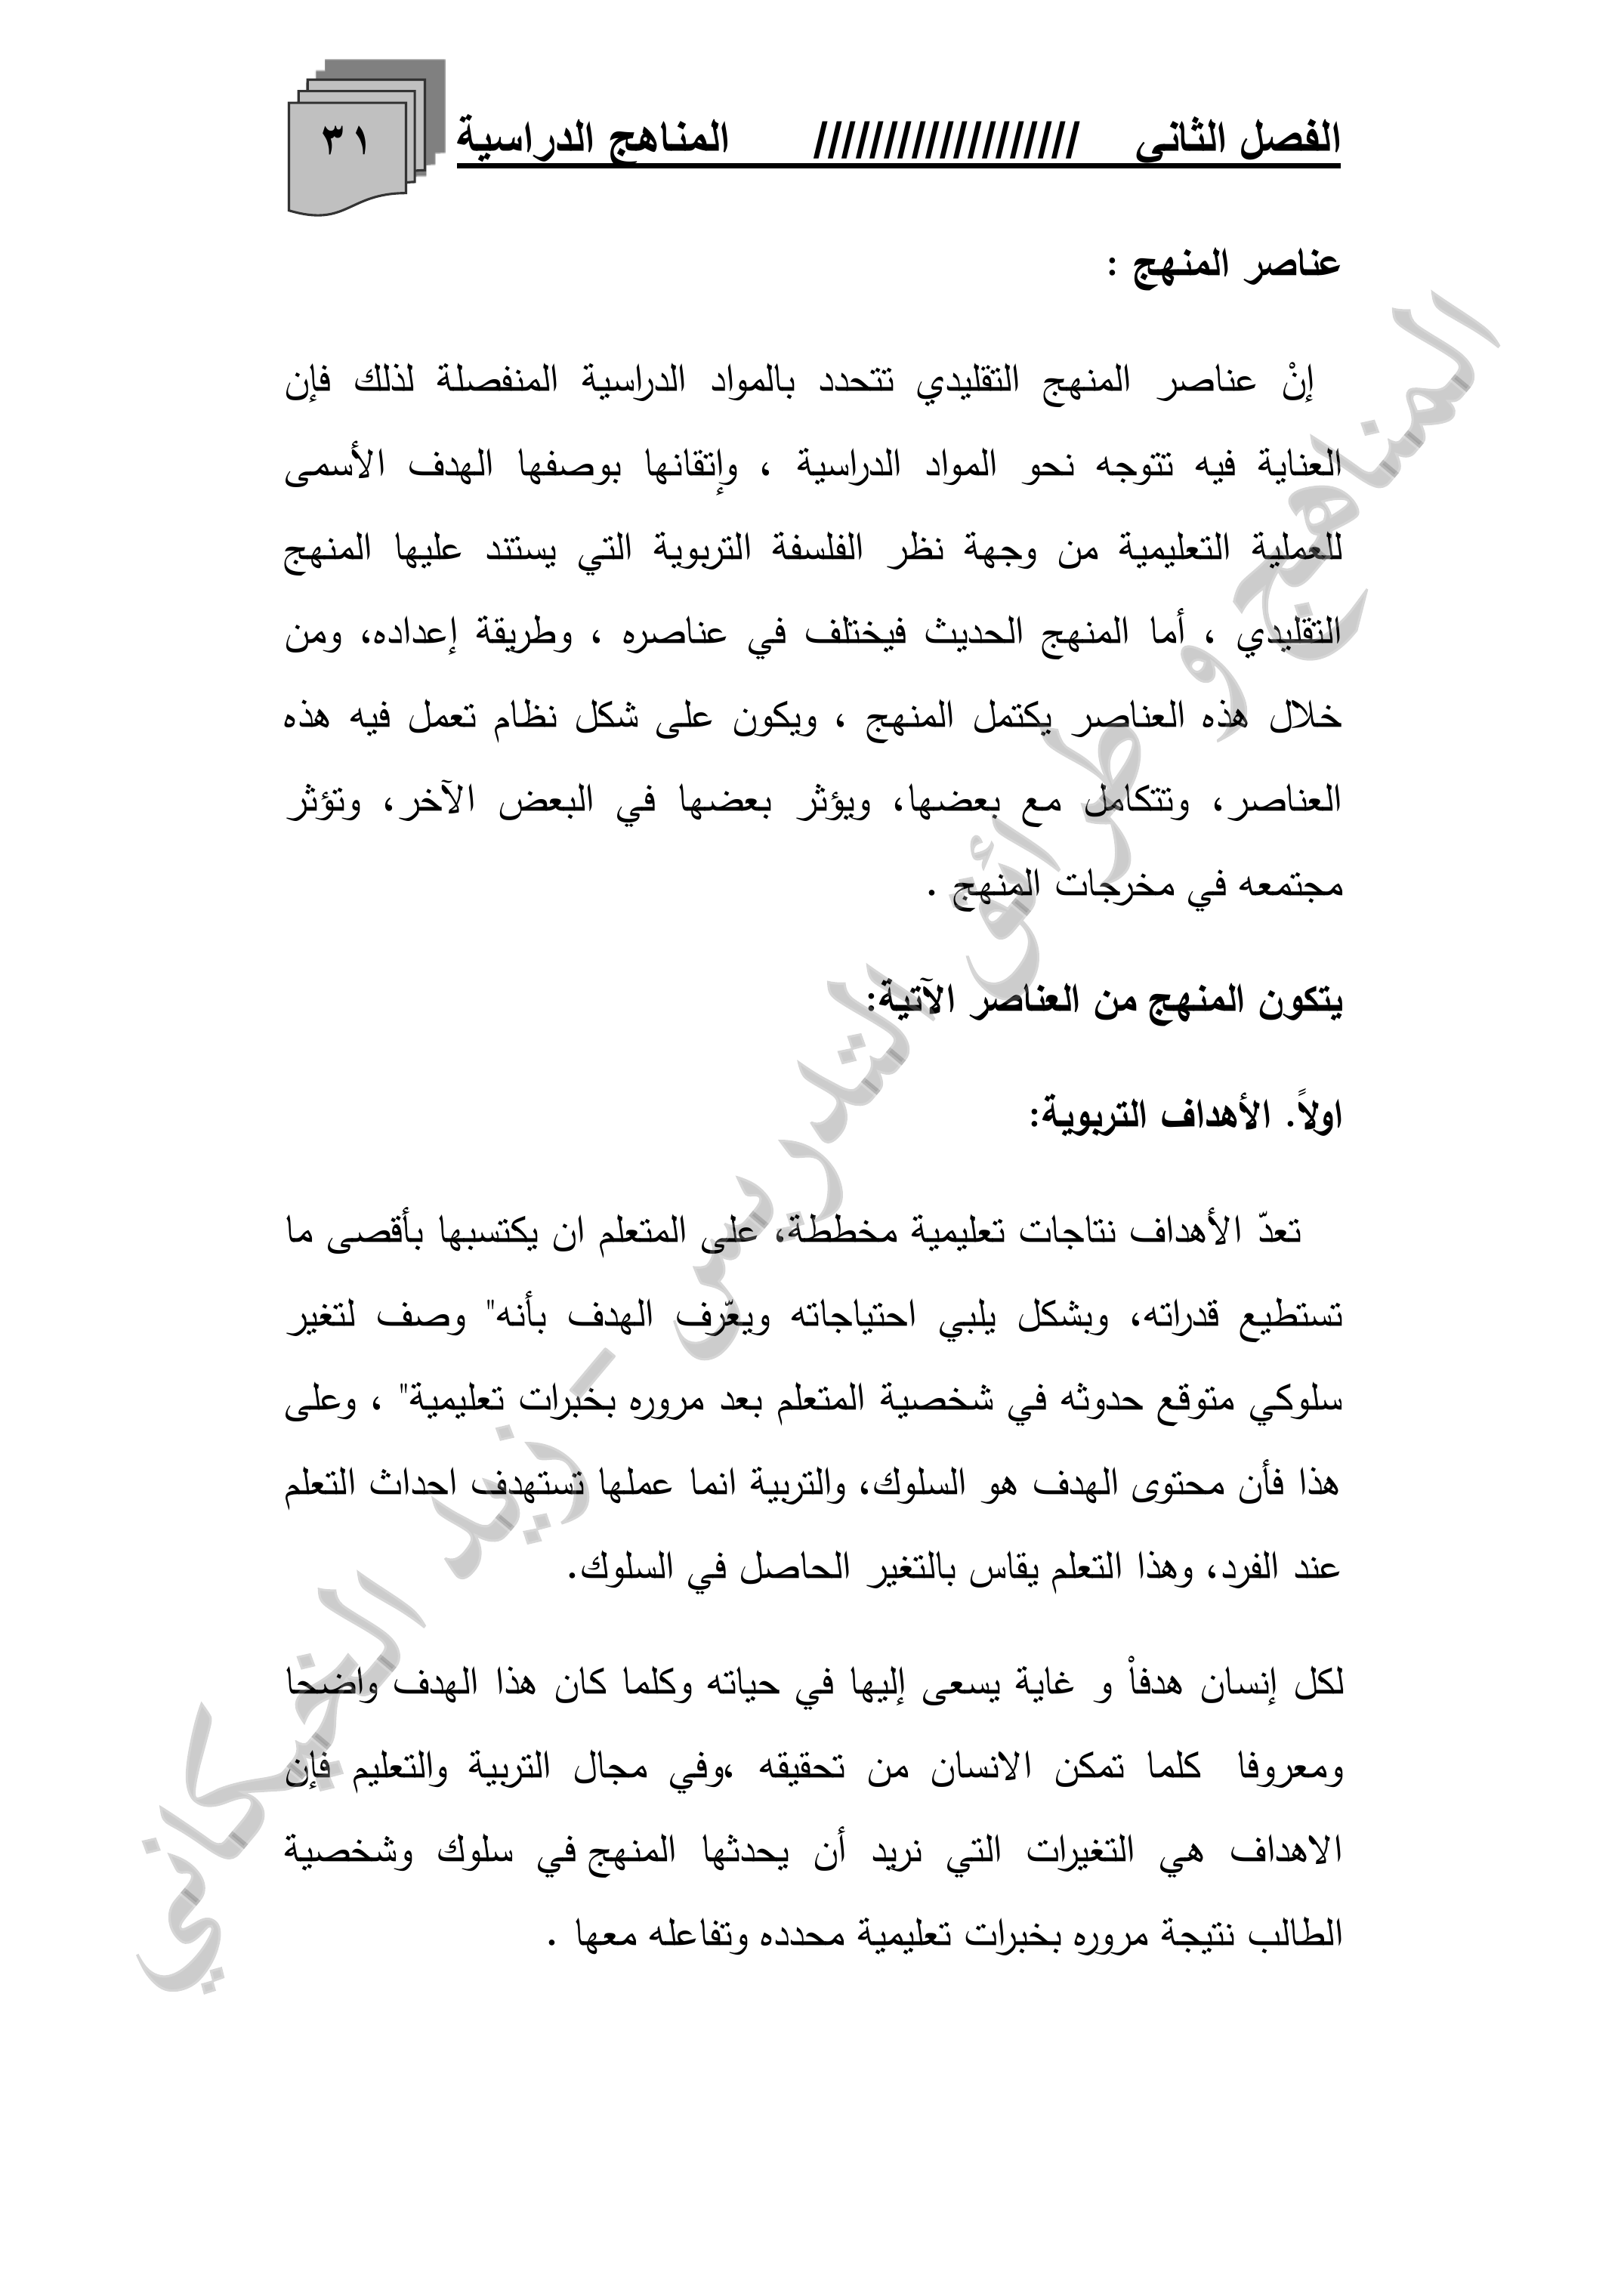 الفصل الثاني /////////////////// المناهج الدراسية ٣١
عناصر المنهج :
إنْ عناصر المنهج التقليدي تتحدد بالمواد الدراسية المنفصلة لذلك فإن
العناية فيه تتوجه نحو المواد الدراسية ، وإتقانها بوصفها الهدف الأسمى
للعملية التعليمية من وجهة نظر الفلسفة التربوية التي يستند عليها المنهج
التقليدي ، أما المنهج الحديث فيختلف في عناصره ، وطريقة إعداده، ومن
خلال هذه العناصر يكتمل المنهج ، ويكون على شكل نظام تعمل فيه هذه
العناصر، وتتكامل مع بعضها، ويؤثر بعضها في البعض الآخر، وتؤثر
مجتمعه في مخرجات المنهج .
يتكون المنهج من العناصر الآتية:
اولاً. الأهداف التربوية:
تعدّ الأهداف نتاجات تعليمية مخططة، على المتعلم ان يكتسبها بأقصى ما
تستطيع قدراته، وبشكل يلبي احتياجاته ويعّرف الهدف بأنه" وصف لتغير
سلوكي متوقع حدوثه في شخصية المتعلم بعد مروره بخبرات تعليمية" ، وعلى
هذا فأن محتوى الهدف هو السلوك، والتربية انما عملها تستهدف احداث التعلم
عند الفرد، وهذا التعلم يقاس بالتغير الحاصل في السلوك.
لكل إنسان هدفاْ و غاية يسعى إليها في حياته وكلما كان هذا الهدف واضحا
ومعروفا كلما تمكن الانسان من تحقيقه ،وفي مجال التربية والتعليم فإن
الاهداف هي التغيرات التي نريد أن يحدثها المنهج في سلوك وشخصية
الطالب نتيجة مروره بخبرات تعليمية محدده وتفاعله معها .
المناهج و طرائق التدريس - زيد الخيكاني